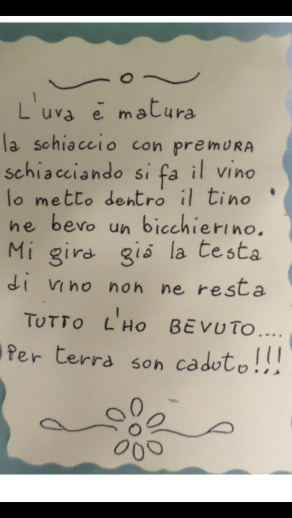 L'uva è matura
la schiaccio con premURA
schiacciando si fa il vino
lo metto dentro il tino
ne bevo un bicchierino.
Mi gira già la testa
di vino non ne resta
TUTTO L'HO BEVUTO....
Per terra son caduto!!!